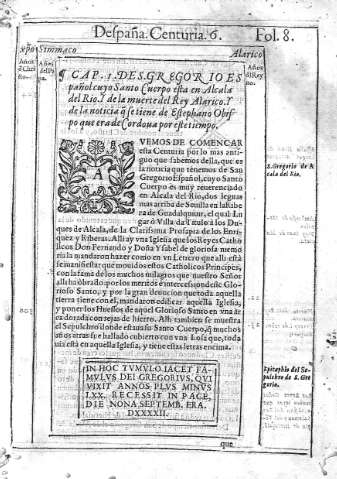 Despaña. Centuria. 6. Fol. 8.
xpo Simmaco Alarico
¶ CAP. 1. DE S. GREGORIO ES
pañol cuyo Santo Cuerpo esta en Alcala
del Rio. Y de la muerte del Rey Alarico. Y
de la noticia q̃ se tiene de Estephano Obis
po que era de Cordoua por este tiempo.
AVEMOS DE COMENCAR
esta Centuria por lo mas anti-
guo que sabemos della, que es
la noticia que tenemos de San
Gregorio Español, cuyo Santo
Cuerpo es muy reuerenciado
en Alcala del Rio, dos leguas
mas arriba de Seuilla en la ribe
ra de Guadalquiuir, el qual Lu
gar ò Villa da titulo a los Du-
ques de Alcala, de la Clarissima Prosapia de los Enri-
quez y Riberas. Alli ay vna Iglesia que los Reyes Catho
licos Don Fernando y Doña Ysabel de gloriosa memo
ria la mandaron hazer como en vn Letrero que alli està
se manifiesta: que mouidos estos Catholicos Principes,
con la fama de los muchos milagros que nuestro Señor
alli ha obrado por los meritos è intercession deste Glo
rioso Santo, y por la gran deuocion que toda aquella
tierra tiene con el, mandaron edificar aquella Iglesia,
y poner los Huessos de aquel Glorioso Santo en vna ar
ca dorada con rejas de hierro. Alli tambien se muestra
el Sepulchro donde estaua su Santo Cuerpo, q̃ muchos
años atras se e hallado cubierto con vna Losa que, toda
uia està en aquella Iglesia, y tiene estas letras encima.
S. Gregorio de Al
cala del Rio.
IN HOC TVMVLO IACET FA-
MVLVS DEI GREGORIVS, QVI
VIXIT ANNOS PLVS MINVS
LXX. RECESSIT IN PACE,
DIE NONA SEPTEMB. ERA.
DXXXXII.
Epitaphio del Se-
pulchro de S. Gre
gorio.
que